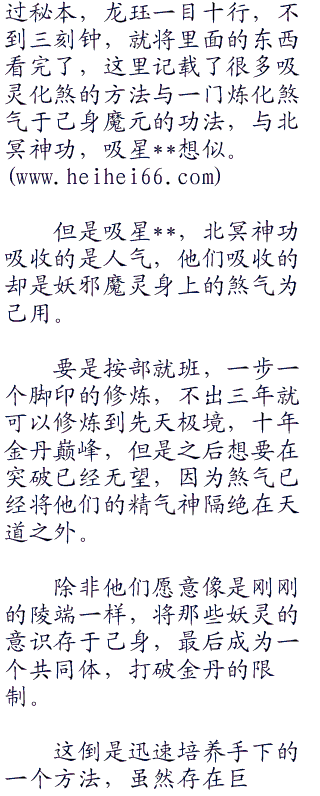 过秘本，龙珏一目十行，不
到三刻钟，就将里面的东西
看完了，这里记载了很多吸
灵化煞的方法与一门炼化煞
气于己身魔元的功法，与北
冥神功，吸星**想似。
(www.heihei66.com)
但是吸星**，北冥神功
吸收的是人气，他们吸收的
却是妖邪魔灵身上的煞气为
己用。
要是按部就班，一步一
个脚印的修炼，不出三年就
可以修炼到先天极境，十年
金丹巅峰，但是之后想要在
突破已经无望，因为煞气已
经将他们的精气神隔绝在天
道之外。
除非他们愿意像是刚刚
的陵端一样，将那些妖灵的
意识存于己身，最后成为一
个共同体，打破金丹的限
制。
这倒是迅速培养手下的
一个方法，虽然存在巨